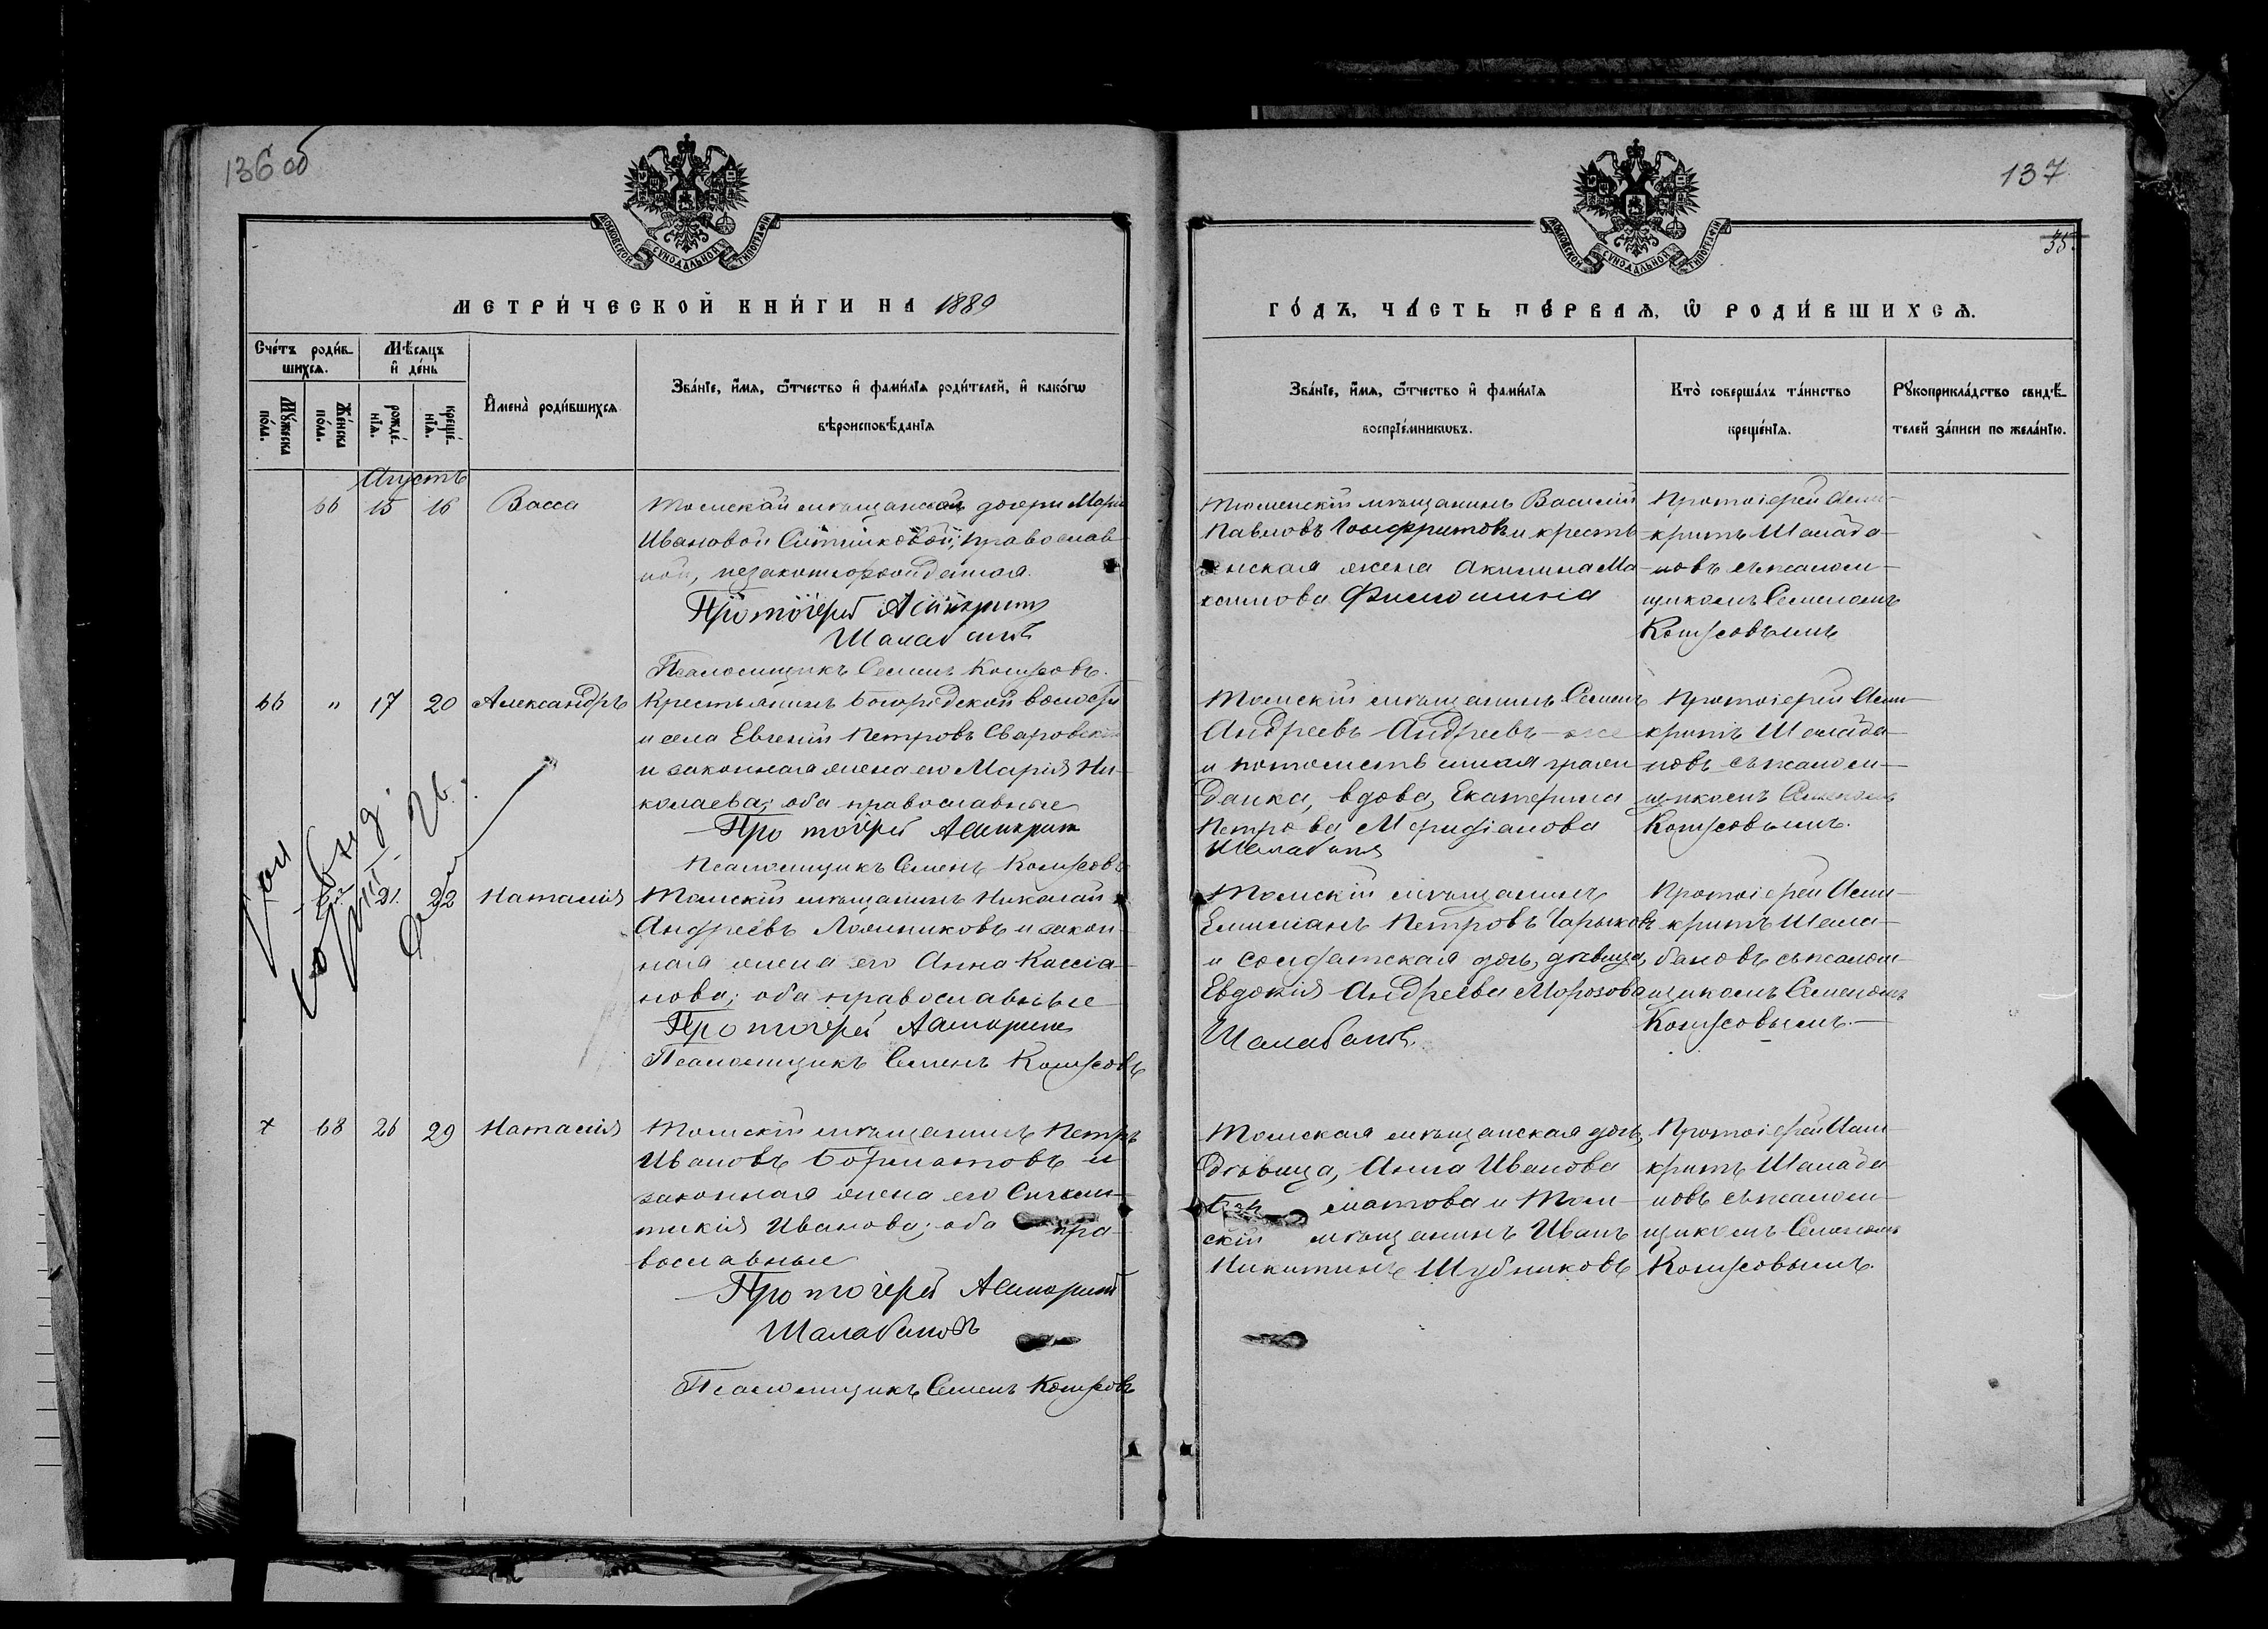 136 об
137
35
МОСКОВСКОЙ СУНОДАЛЬНОЙ ТИПОГРАФІИ
МОСКОВСКОЙ СУНОДАЛЬНОЙ ТИПОГРАФІИ
МЕТРИ́ЧЕСКОЙ КНИ́ГИ НА 1889
ГО́ДЪ, ЧА́СТЬ ПЕ́РВАѦ, Ѿ РОДИ́ВШИХСѦ.
Сче́тъ роди́в-
шихсѧ.
Мѣ́сѧцъ
и҆ де́нь
Мꙋ́жеска
по́ла.
Же́нска
по́ла.
рожде́-
нїѧ.
креще́-
нїѧ.
И҆мена̀ роди́вшихсѧ
Зва́нїе, и҆́мѧ, ѻ҆́тчество и҆ фами́лїѧ роди́телей, и҆ како́гѡ
вѣроисповѣ́данїѧ
Зва́нїе, и҆́мѧ, ѻ҆́тчество и҆ фами́лїѧ
воспрїе́мникѡвъ.
Кто̀ соверша́лъ та́инство
креще́нїѧ.
Рꙋкоприкла́дство свидѣ́-
телей за́писи по жела́нїю.
Августъ
66 15 16 Васса
Томской мѣщанской дочери Маріи
Ивановой Ситниковой; православ-
ной, незаконнорожденная.
Протоіерей Асинкритъ
Шалабановъ
Псаломщикъ Семенъ Комаровъ.
Тюменскій мѣщанинъ Василій
Павловъ и кресть-
янская жена Акилина Ма-
ксимова Филошкина
Протоіерей Асин-
критъ Шалаба-
новъ съ псалом-
щикомъ Семеномъ
Комаровымъ
66 " 17 20 Александръ
Крестьянинъ Богородской волости
и села Евгеній Петровъ Сваровскій
и законная жена его Марія Ни-
колаева; оба православные
Протоіерей Асинкритъ
Псаломщикъ Семенъ Комаровъ
Томскій мѣщанинъ Семенъ
Андреевъ Андреевъ же
и потомственная граж-
данка, вдова, Екатерина
Петрова
Шалабановъ
Протоіерей Асин-
критъ Шалаба-
новъ съ псалом-
щикомъ Семеномъ
Комаровымъ.
67 21 22 Наталія
Томскій мѣщанинъ Николай
Андреевъ Ложниковъ и закон-
ная жена его Анна Кассіа-
нова; оба православные
Протоіерей Асинкритъ
Псаломщикъ Семенъ Комаровъ
Томскій мѣщанинъ
Емиліанъ Петровъ Чарыковъ
и солдатская дочь, дѣвица,
Евдокія Андреева Морозова
Шалабановъ.
Протоіерей Асин-
критъ Шала-
бановъ съ псалом-
щикомъ Семеномъ
Комаровымъ.
VIII 26.
х 68 26 29 Наталія
Томскій мѣщанинъ Петръ
Ивановъ Борматовъ и
законная жена его Синкли-
тикія Иванова; оба пра-
вославные
Протоіерей Асинкритъ
Шалабановъ
Псаломщикъ Семенъ Комаровъ
Томская мѣщанская дочь,
дѣвица, Анна Иванова
Борматова и Том-
скій мѣщанинъ Иванъ
Никитинъ Шубниковъ
Протоіерей Асин-
критъ Шалаба-
новъ съ псалом-
щикомъ Семеномъ
Комаровымъ.